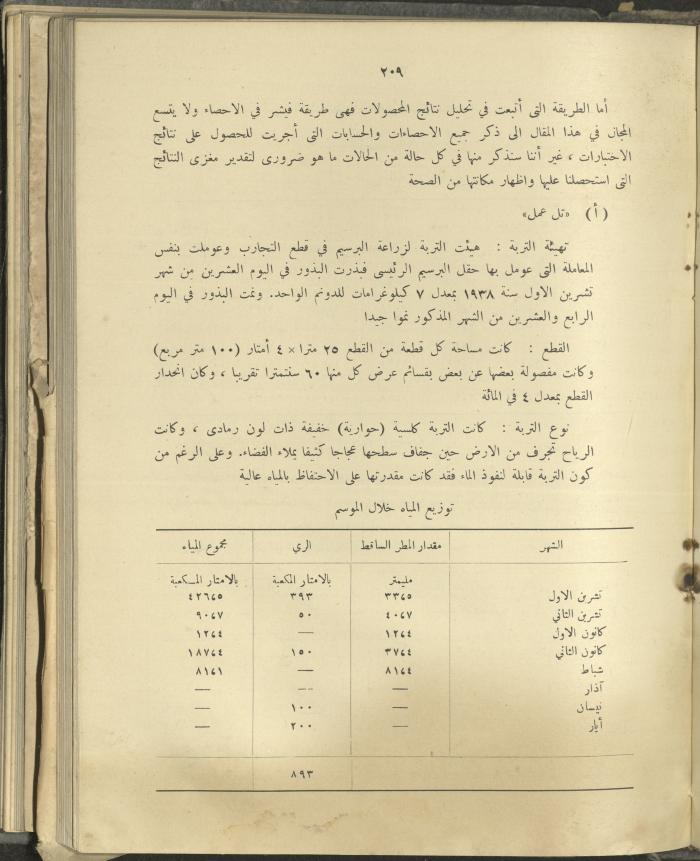 ٢٠٩
أما الطريقة التى أتبعت في تحليل نتائج المحصولات فهى طريقة فيشر في الاحصاء ولا يتسع
المجال في هذا المقال الى ذكر جميع الاحصاءات والحسابات التى أجريت للحصول على نتائج
الاختبارات ، غير أننا سنذكر منها في كل حالة من الحالات ما هو ضرورى لتقدير مغزى النتائج
التى استحصلنا عليها واظهار مكانتها من الصحة
( أ ) «تل عمل»
تهيئة التربة : هيئت التربة لزراعة البرسيم في قطع التجارب وعوملت بنفس
المعاملة التى عومل بها حقل البرسيم الرئيسى فبذرت البذور في اليوم العشرين من شهر
تشرين الاول سنة ١٩٣٨ بمعدل ٧ كيلوغرامات للدونم الواحد. ونمت البذور في اليوم
الرابع والعشرين من الشهر المذكور نموا جيدا
القطع : كانت مساحة كل قطعة من القطع ٢٥ مترا × ٤ أمتار (١٠٠ متر مربع)
وكانت مفصولة بعضها عن بعض بقسائم عرض كل منها ٦٠ سنتمترا تقريبا ، وكان انحدار
القطع بمعدل ٤ في المائة
نوع التربة : كانت التربة كلسية (حوارية) خفيفة ذات لون رمادى ، وكانت
الرياح تجرف من الارض حين جفاف سطحها عجاجا كثيفا يملاء الفضاء. وعلى الرغم من
كون التربة قابلة لنفوذ الماء فقد كانت مقدرتها على الاحتفاظ بالمياه عالية
توزيع المياه خلال الموسم
الشهر مقدار المطر الساقط الري مجموع المياه
مليمتر بالامتار المكعبة بالامتار المكعبة
تشرين الاول ٣٣٬٥ ٣٩٣ ٤٢٦٬٥
تشرين الثاني ٤٠٬٧ ٥٠ ٩٠٬٧
كانون الاول ١٢٬٤ — ١٢٬٤
كانون الثاني ٣٧٬٤ ١٥٠ ١٨٧٬٤
شباط ٨١٬٤ — ٨١٬١
آذار — — —
نيسان — ١٠٠ —
أيار — ٢٠٠ —
٨٩٣